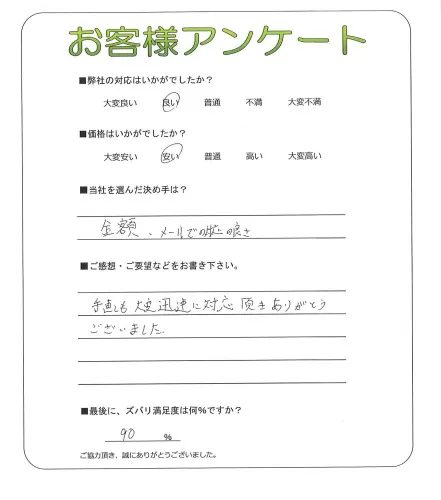 お客様アンケート
■弊社の対応はいかがでしたか？
大変良い 良い 普通 不満 大変不満
■価格はいかがでしたか？
大変安い 安い 普通 高い 大変高い
■当社を選んだ決め手は？
金額、メールでの対応の良さ
■ご感想・ご要望などをお書き下さい。
大変迅速に対応頂きありがとう
ございました
■最後に、ズバリ満足度は何%ですか？
90 %
ご協力頂き、誠にありがとうございました。